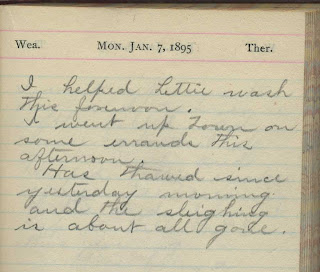 Wea. MON. JAN. 7, 1895 Ther.
I helped Lettie wash
this forenoon.
I went up town on
some errands this
afternoon.
Has thawed since
yesterday morning
and the sleighing
is about all gone.